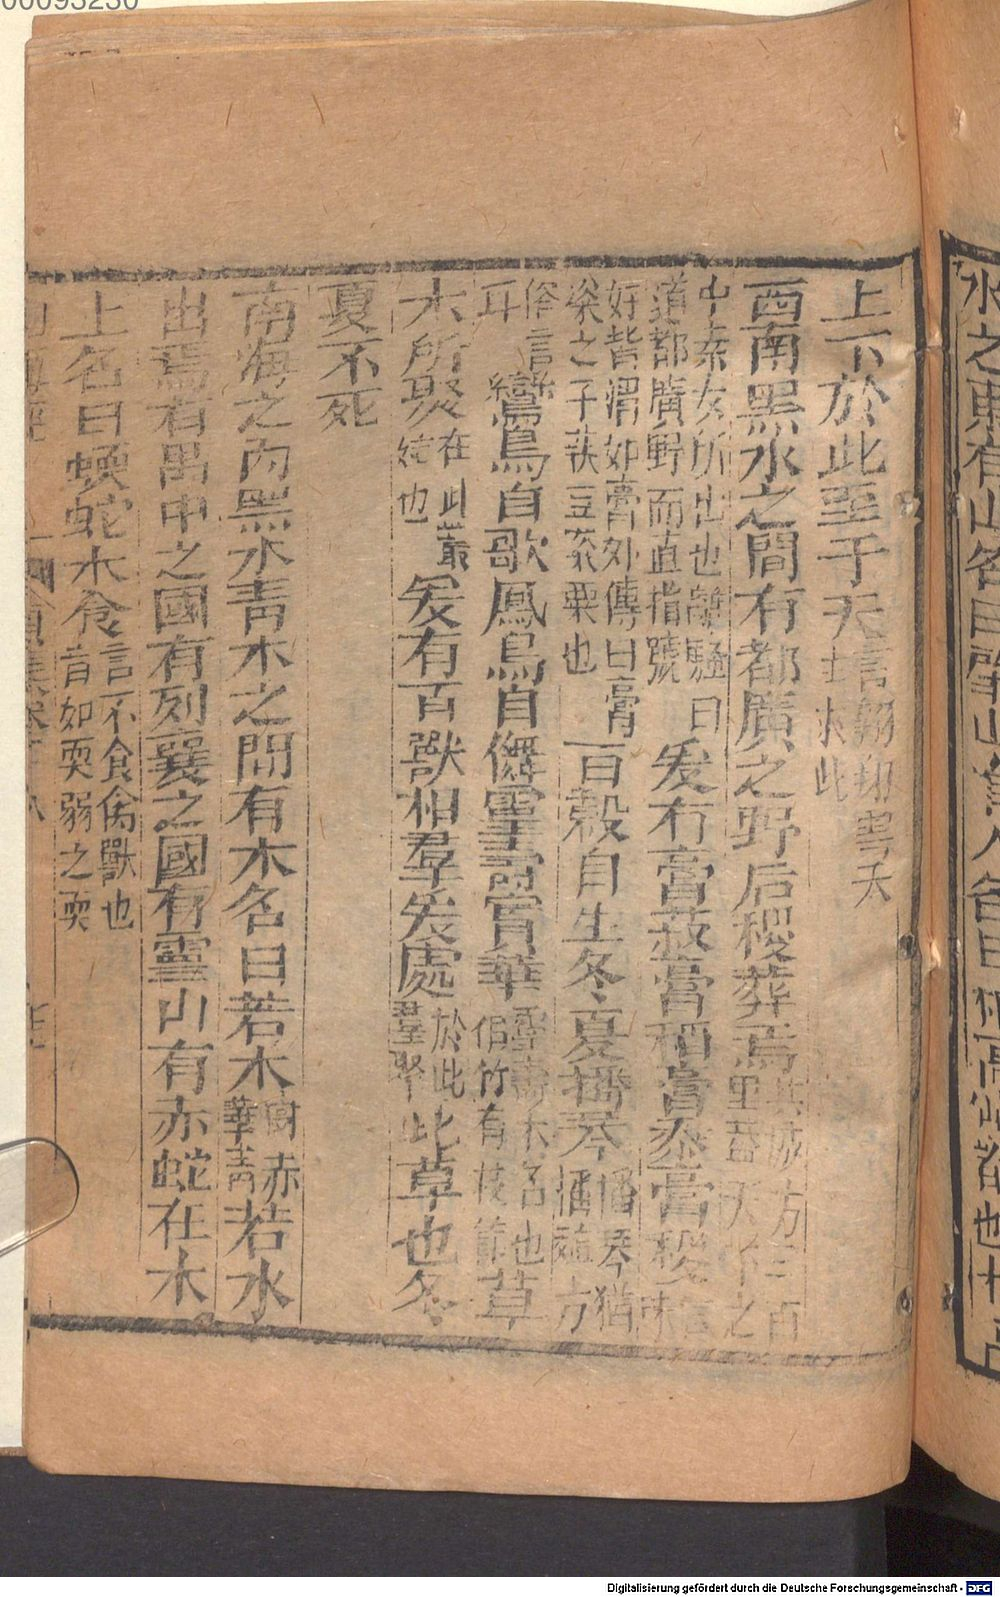 水之東有山名曰肇山有人名曰柏高仙者也柏高
上下於此至于天言翱翔雲天士求此
西南黑水之間有都廣之野后稷葬焉其城方三百里蓋天下之
中素女所出也離騷曰道都廣野而直指號爰有膏菽膏稻膏黍膏稷言味
好皆滑如膏外傳曰膏粱之子菽豆粢粟也百穀自生冬夏播琴播琴猶播殖方
俗言耳鸞鳥自歌鳳鳥自儛靈壽實華靈壽木名也侣竹有枝節草
木所聚在此叢爰有百獸相羣爰處於此羣聚此草也冬
夏不死
南海之內黑水青木之間有木名曰若木樹赤華青若水
出焉有禺中之國有列襄之國有靈山有赤蛇在木
上名曰蝡蛇木食言不食禽獸也音如耎弱之耎
00093230
Digitalisierung gefördert durch die Deutsche Forschungsgemeinschaft - DFG